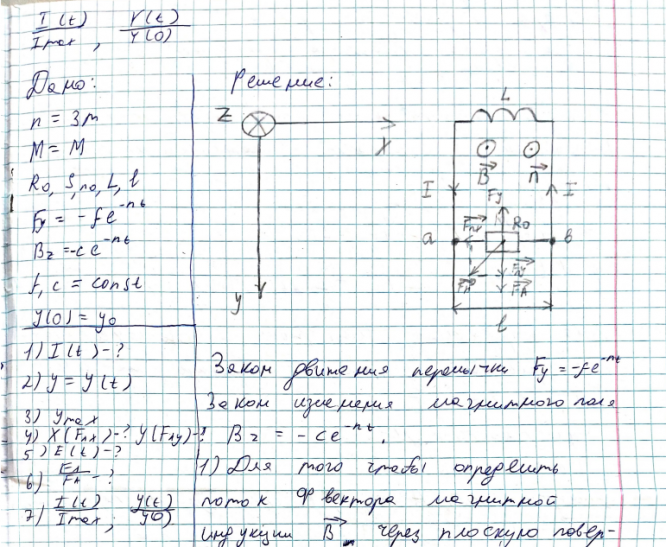 I(t)/Imax, Y(t)/Y(0)
Дано:
n = 3m
M = M
R0, S, n0, L, l
Fy = -fe^-nt
Bz = -ce^-nt
f, c = const
y(0) = y0
1) I(t) - ?
2) y = y(t)
3) ymax
4) X(FAx) - ? Y(FAy) - ?
5) E(t) - ?
6) FA/FA - ?
7) I(t)/Imax; y(t)/y(0)
Решение:
Z
X
y
L
B n
I Fy I
a R0 b
l
Закон движения перемычки Fy = -fe^-nt
Закон изменения магнитного поля
Bz = -ce^-nt.
1) Для того чтобы определить
поток Ф вектора магнитной
индукции B через плоскую повер-